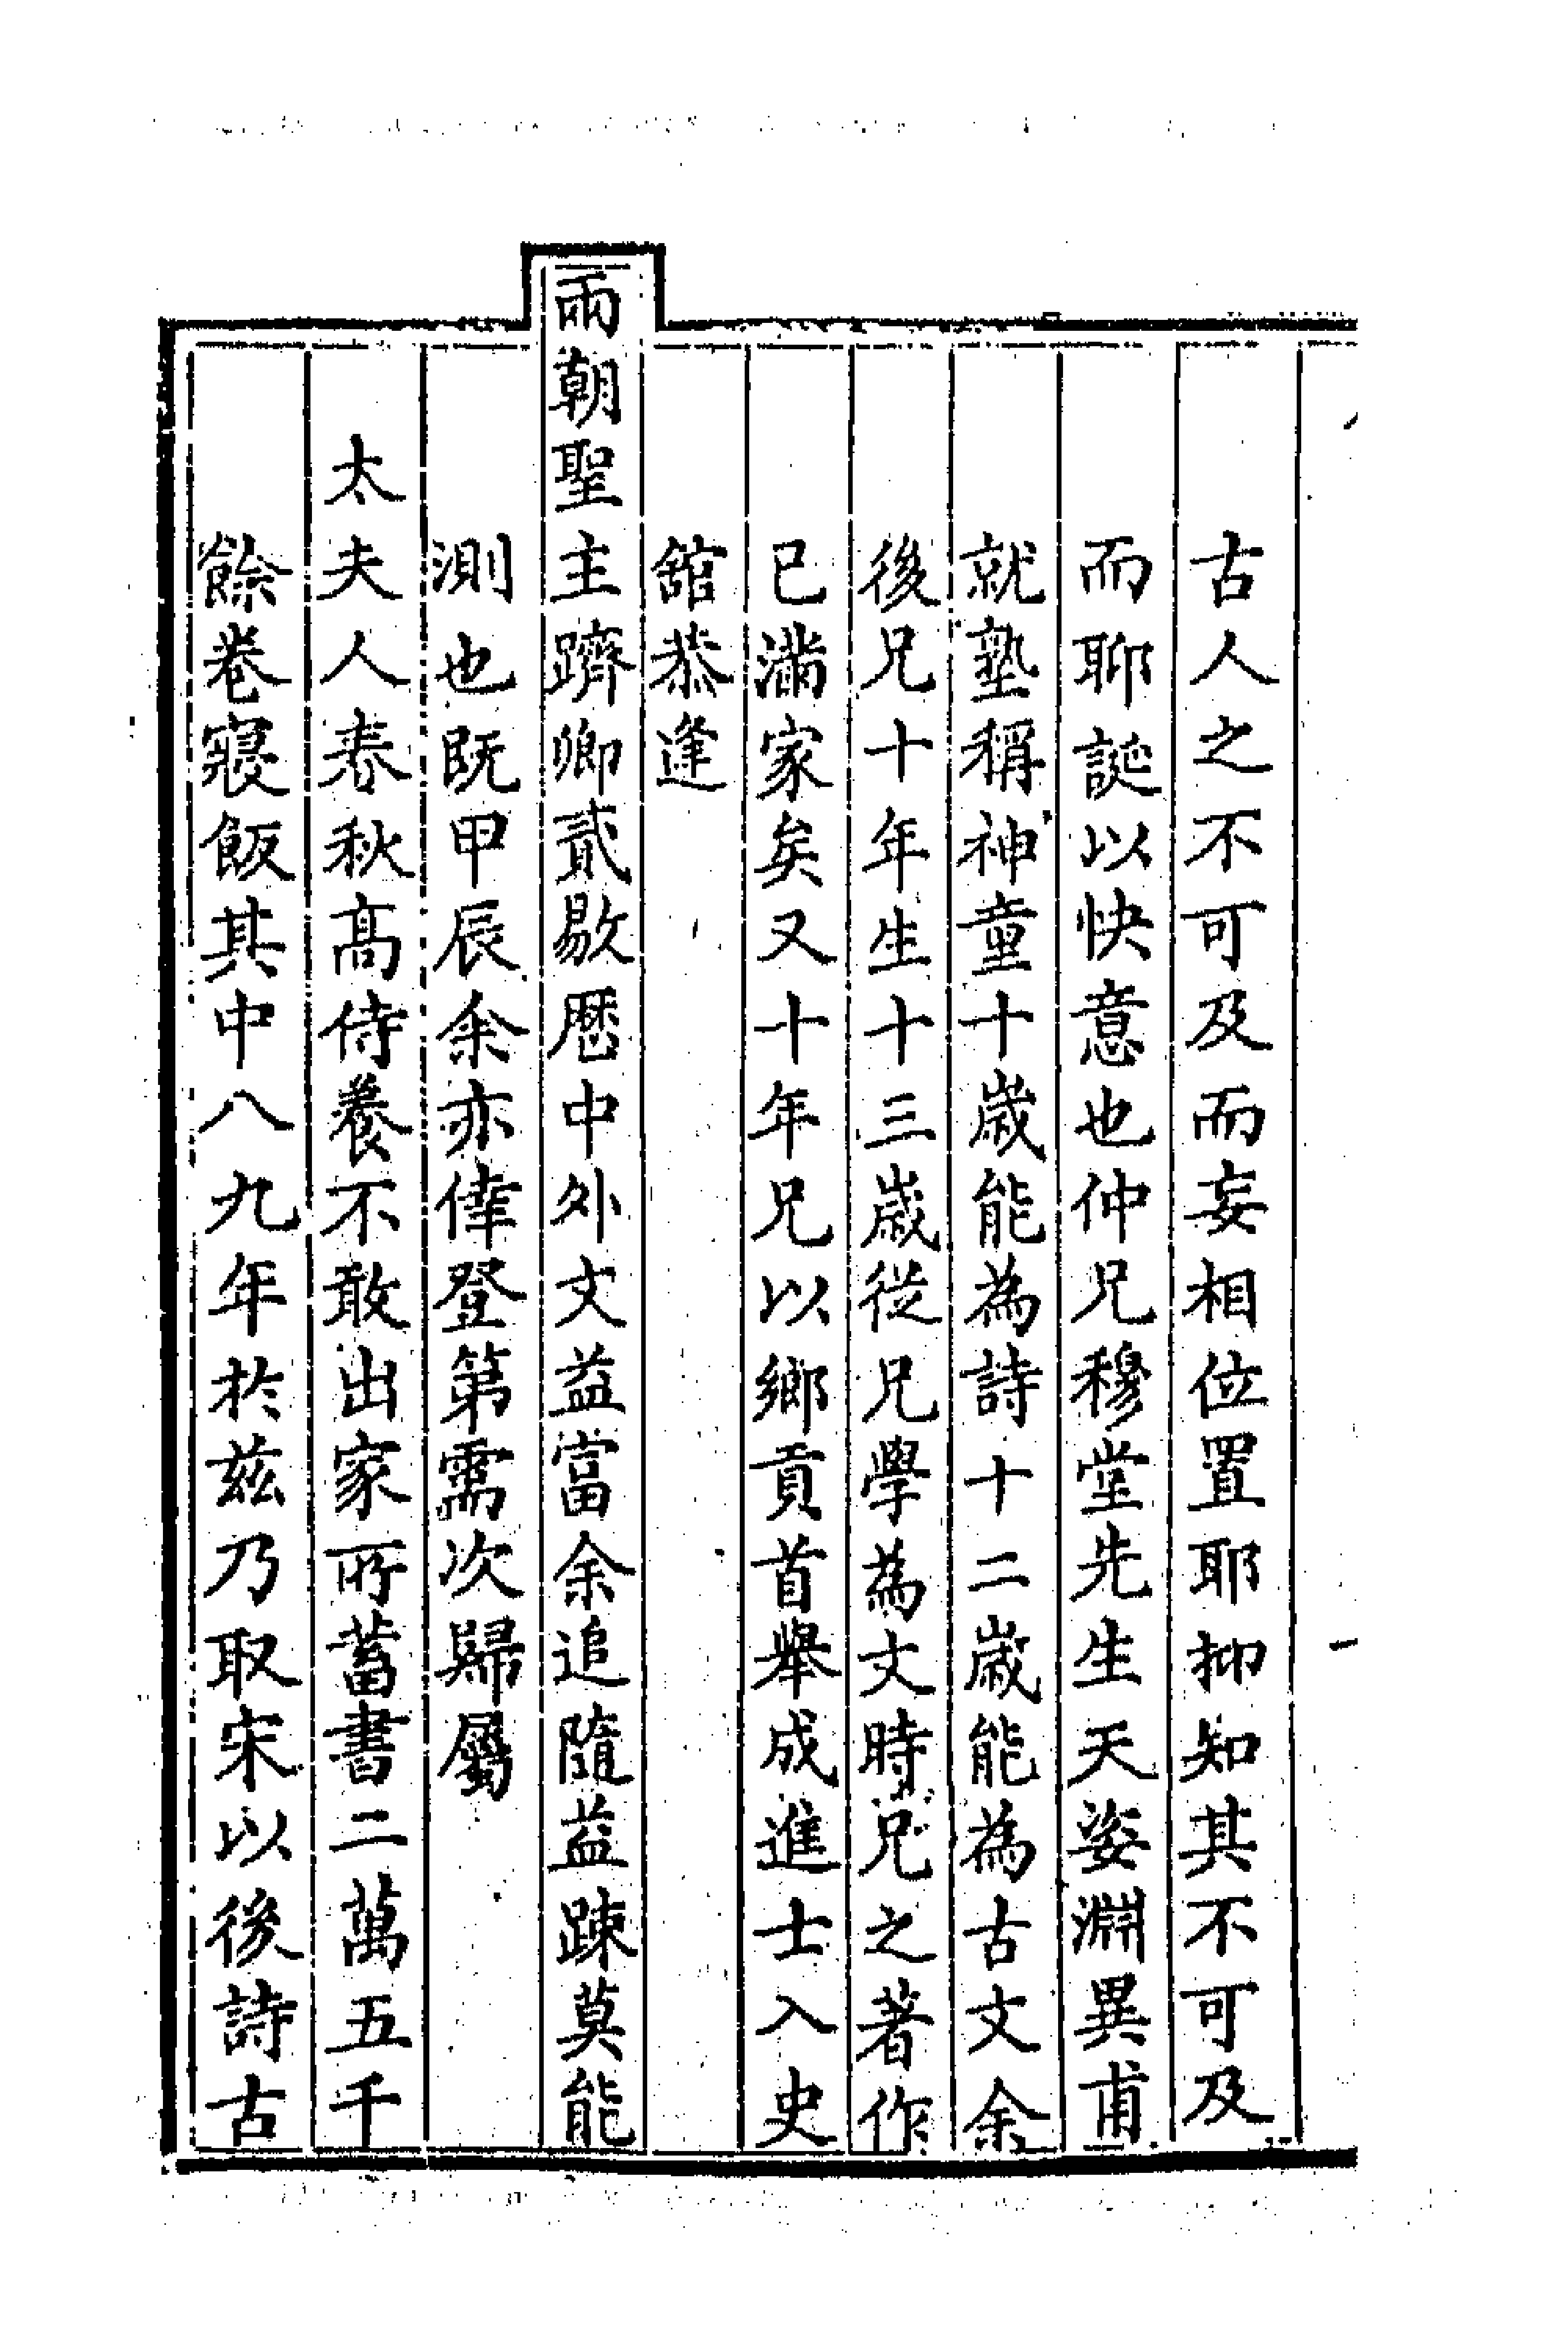 古人之不可及而妄相位置耶抑知其不可及
而聊誕以快意也仲兄穆堂先生天姿淵異甫
就塾稱神童十歳能為詩十二歳能為古文余
後兄十年生十三歳從兄學為文時兄之著作
已滿家矣又十年兄以鄉貢首舉成進士入史
舘恭逢
兩朝聖主躋卿貳敭歴中外文益富余追隨益踈莫能
測也既甲辰余亦倖登第需次歸屬
太夫人春秋高侍養不敢出家所蓄書二萬五千
餘卷寢飯其中八九年於兹乃取宋以後詩古